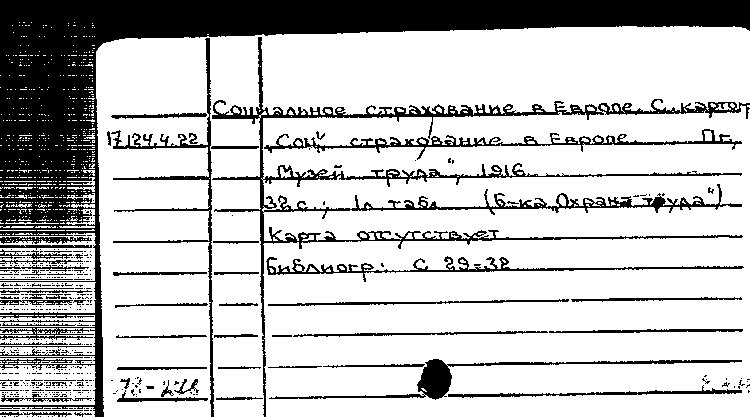 Социальное страхование в Европе. С картогр
17.124.4.22 „Соц." страхование в Европе. Пг,
„Музей труда", 1916.
32 с.; 1л табл (б-ка „Охрана труда")
Карта отсутствует
Библиогр.: С 29-32